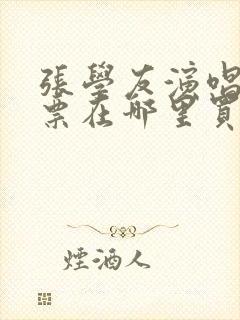 張學友演唱
票在哪里買
煙酒人